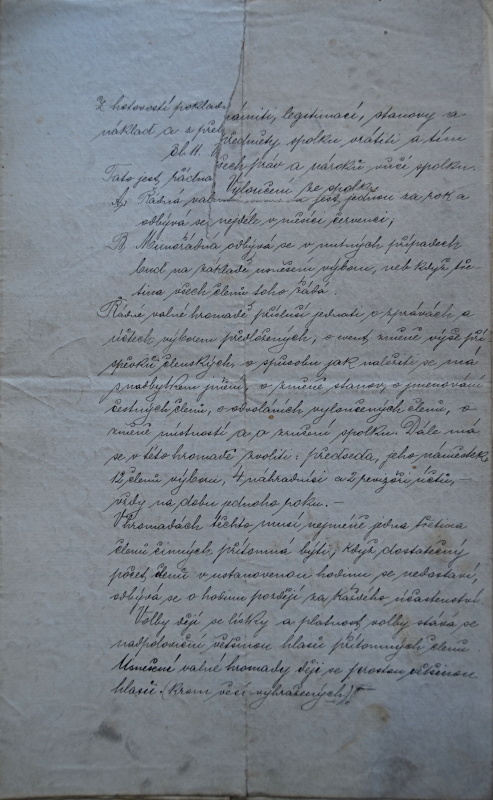 Z hotovosti poklad
náklad a z
námiti, legitimací, stanovy a
předměty spolku vrátiti a tím
čl. 11.
všech práv a nároků vůči spolku.
Tato jest řádná
Vyloučení ze spolku
A, Řádná val jest jednou za rok a
odbývá se nejdéle v měsíci červenci;
B Mimořádná odbývá se v nutných případech
buď na základě usnešení výboru, neb když tře-
tina všech členů toho žádá.
Řádné valné hromadě přísluší jednati o zprávách a
účtech výborem předložených, o event. změně výše pří-
spěvků členských, o způsobu jak naložiti se má
s nadbytkem jmění, o změně stanov, o jmenování
čestných členů, o odvoláních vyloučených členů, o
změně místností a o zrušení spolku. Dále má
se v této hromadě zvoliti: předseda, jeho náměstek
12 členů výboru, 4 náhradníci a 2 revizoři účtů, –
vždy na dobu jednoho roku. –
V hromadách těchto musí nejméně jedna třetina
členů činných přítomna býti; když dostatečný
počet členů v ustanovenou hodinu se nedostaví,
odbývá se o hodinu později za každého účastenství
Volby dějí se lístky a platnost volby stává se
nadpoloviční většinou hlasů přítomných členů
Usnešení valné hromady děje se prostou většinou
hlasů. (Krom věcí vyhražených)! –